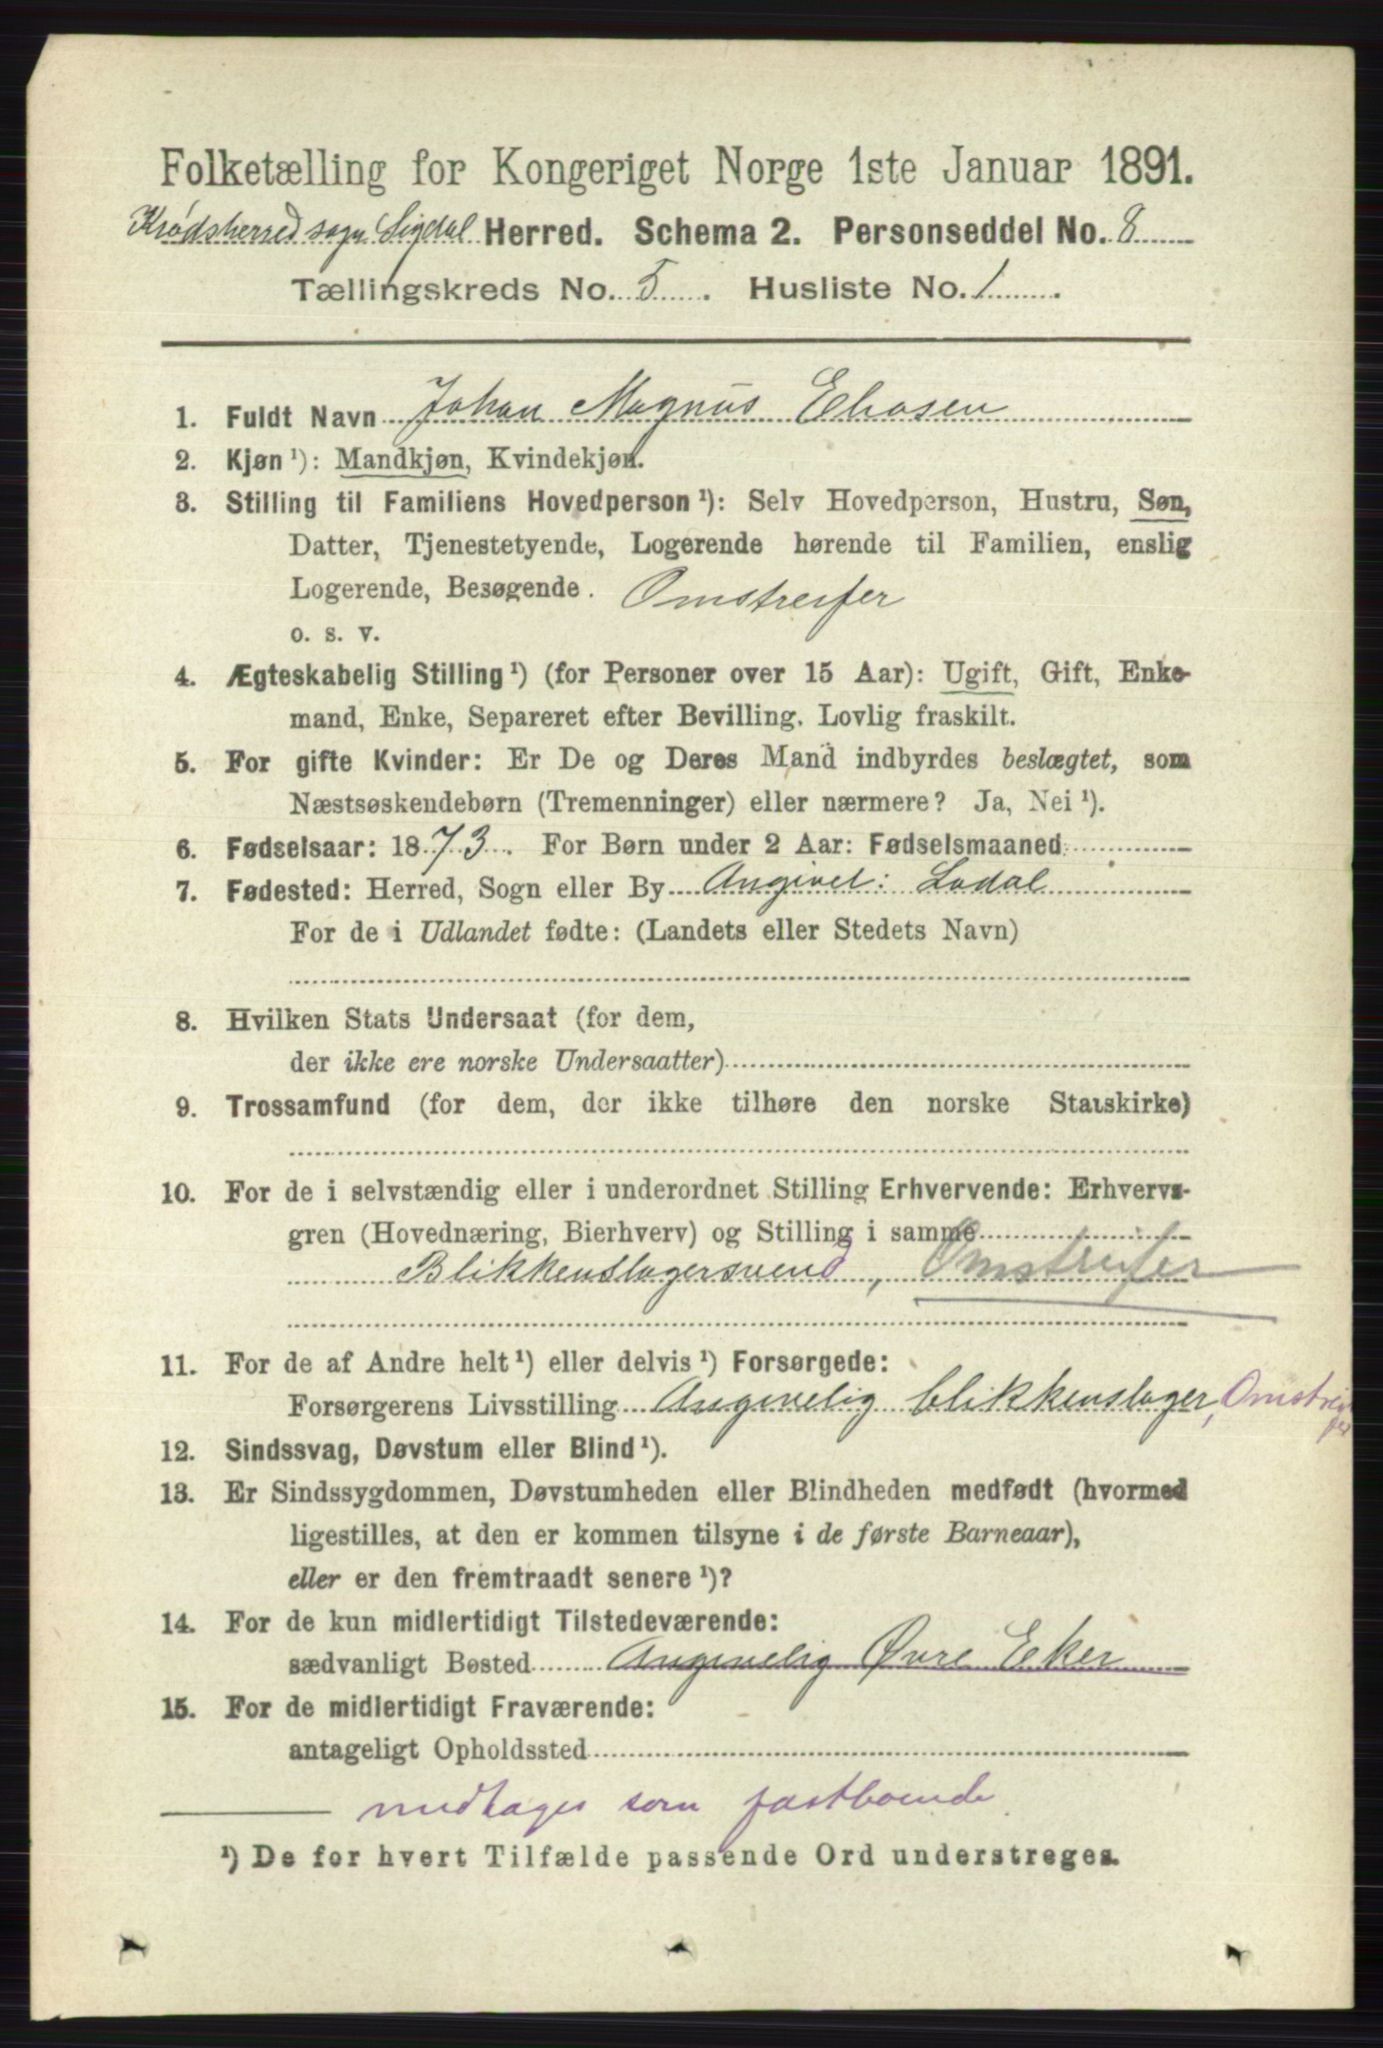 Folketælling for Kongeriget Norge 1ste Januar 1891.
Krødsherred sogn Sigdal Herred. Schema 2. Personseddel No. 8
Tællingskreds No. 5. Husliste No. 1.
1. Fuldt Navn Johan Magnus
2. Kjøn ¹): Mandkjøn, Kvindekjøn.
3. Stilling til Familiens Hovedperson ¹): Selv Hovedperson, Hustru, Søn,
Datter, Tjenestetyende, Logerende hørende til Familien, enslig
Logerende, Besøgende. Omstreifer
o. s. v.
4. Ægteskabelig Stilling ¹) (for Personer over 15 Aar): Ugift, Gift, Enke-
mand, Enke, Separeret efter Bevilling. Lovlig fraskilt.
5. For gifte Kvinder: Er De og Deres Mand indbyrdes beslægtet, som
Næstsøskendebørn (Tremenninger) eller nærmere? Ja, Nei ¹).
6. Fødselsaar: 1873. For Børn under 2 Aar: Fødselsmaaned
7. Fødested: Herred, Sogn eller By Angivel: Lodal
For de i Udlandet fødte: (Landets eller Stedets Navn)
8. Hvilken Stats Undersaat (for dem,
der ikke ere norske Undersaatter)
9. Trossamfund (for dem, der ikke tilhøre den norske Statskirke)
10. For de i selvstændig eller i underordnet Stilling Erhvervende: Erhvervs-
gren (Hovednæring, Bierhverv) og Stilling i samme
Blikkenslagersvend, Omstreifer
11. For de af Andre helt ¹) eller delvis ¹) Forsørgede:
Forsørgerens Livsstilling Angivelig blikkenslager, Omstreifer
12. Sindssvag, Døvstum eller Blind ¹).
13. Er Sindssygdommen, Døvstumheden eller Blindheden medfødt (hvormed
ligestilles, at den er kommen tilsyne i de første Barneaar),
eller er den fremtraadt senere ¹)?
14. For de kun midlertidigt Tilstedeværende:
sædvanligt Bosted Angivelig Øvre Eker
15. For de midlertidigt Fraværende:
antageligt Opholdssted
medtages som fastboende
¹) De for hvert Tilfælde passende Ord understreges.